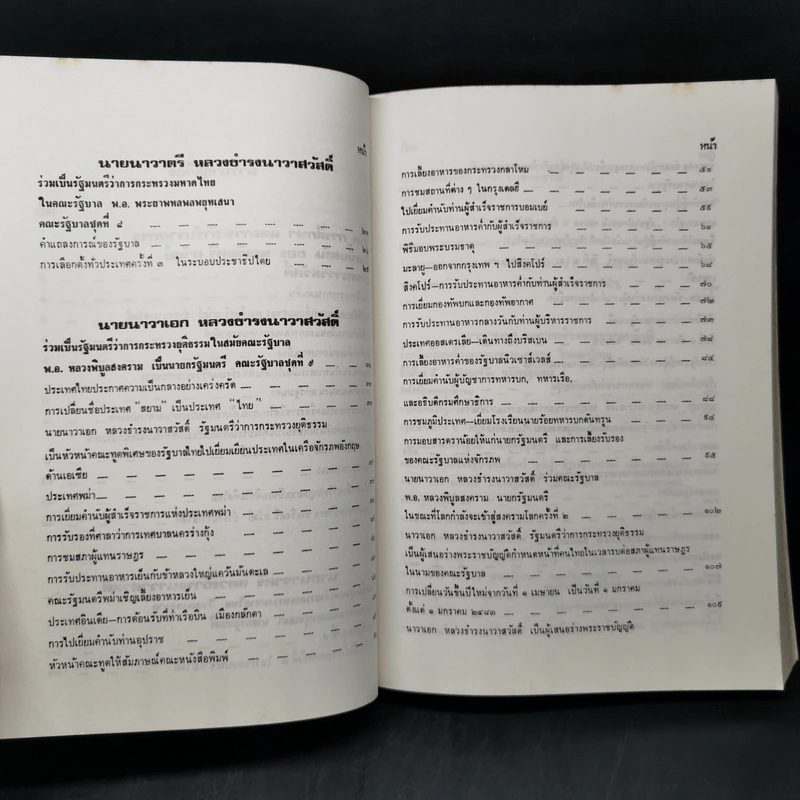 หน้า
นายนาวาตรี หลวงธำรงนาวาสวัสดิ์
ร่วมเป็นรัฐมนตรีว่าการกระทรวงมหาดไทย
ในคณะรัฐบาล พ.อ. พระยาพหลพลพยุหเสนา
คณะรัฐบาลชุดที่ ๘
คำแถลงการณ์ของรัฐบาล
การเลือกตั้งทั่วประเทศครั้งที่ ๓ ในระบอบประชาธิปไตย
นายนาวาเอก หลวงธำรงนาวาสวัสดิ์
ร่วมเป็นรัฐมนตรีว่าการกระทรวงยุติธรรมในสมัยคณะรัฐบาล
พ.อ. หลวงพิบูลสงคราม เป็นนายกรัฐมนตรี คณะรัฐบาลชุดที่ ๙
ประเทศไทยประกาศความเป็นกลางอย่างเคร่งครัด
การเปลี่ยนชื่อประเทศ "สยาม" เป็นประเทศ "ไทย"
นายนาวาเอก หลวงธำรงนาวาสวัสดิ์ รัฐมนตรีว่าการกระทรวงยุติธรรม
เป็นหัวหน้าคณะทูตพิเศษของรัฐบาลไทยไปเยี่ยมเยียนประเทศในเครือจักรภพอังกฤษ
ด้านเอเซีย
ประเทศพม่า
การเยี่ยมคำนับผู้สำเร็จราชการแห่งประเทศพม่า
การรับรองที่ศาลาว่าการเทศบาลนครร่างกุ้ง
การชมสภาผู้แทนราษฎร
การรับประทานอาหารเย็นกับข้าหลวงใหญ่แคว้นมัณฑะเล
คณะรัฐมนตรีพม่าเชิญเลี้ยงอาหารเย็น
ประเทศอินเดีย—การต้อนรับที่ท่าเรือบิน เมืองกลักตา
การไปเยี่ยมคำนับท่านอุปราช
หัวหน้าคณะทูตให้สัมภาษณ์คณะหนังสือพิมพ์
หน้า
การเลี้ยงอาหารของกระทรวงกลาโหม ๕๑
การชมสถานที่ต่าง ๆ ในกรุงเดลฮี ๕๓
ไปเยี่ยมคำนับท่านผู้สำเร็จราชการบอมเบย์ ๕๕
การรับประทานอาหารค่ำกับผู้สำเร็จราชการ ๖๑
พิธีมอบพระบรมธาตุ ๖๕
มะลายู—ออกจากกรุงเทพ ฯ ไปสิงคโปร์ ๖๘
สิงคโปร์—การรับประทานอาหารค่ำกับท่านผู้สำเร็จราชการ ๗๐
การเยี่ยมกองทัพบกและกองทัพอากาศ ๗๒
การรับประทานอาหารกลางวันกับท่านผู้บริหารราชการ ๗๓
ประเทศออสเตรเลีย—เดินทางถึงบริสเบน ๗๗
การเลี้ยงอาหารค่ำของรัฐบาลนิวเซาธ์เวลส์ ๘๔
การเยี่ยมคำนับผู้บัญชาการทหารบก, ทหารเรือ,
และอธิบดีกรมศึกษาธิการ ๘๘
การชมภูมิประเทศ—เยี่ยมโรงเรียนนายร้อยทหารบกดันทรูน ๙๔
การมอบสายตราน้อยให้แก่นายกรัฐมนตรี และการเลี้ยงรับรอง
ของคณะรัฐบาลแห่งจักรภพ ๙๕
นายนาวาเอก หลวงธำรงนาวาสวัสดิ์ ร่วมคณะรัฐบาล
พ.อ. หลวงพิบูลสงคราม นายกรัฐมนตรี
ในขณะที่โลกกำลังจะเข้าสู่สงครามโลกครั้งที่ ๒ ๑๐๒
นาวาเอก หลวงธำรงนาวาสวัสดิ์ รัฐมนตรีว่าการกระทรวงยุติธรรม
เป็นผู้เสนอร่างพระราชบัญญัติกำหนดหน้าที่คนไทยในเวลารบต่อสภาผู้แทนราษฎร
ในนามของคณะรัฐบาล ๑๐๗
การเปลี่ยนวันขึ้นปีใหม่จากวันที่ ๑ เมษายน เป็นวันที่ ๑ มกราคม
ตั้งแต่ ๑ มกราคม ๒๔๘๓ ๑๐๕
นาวาเอก หลวงธำรงนาวาสวัสดิ์ เป็นผู้เสนอร่างพระราชบัญญัติ